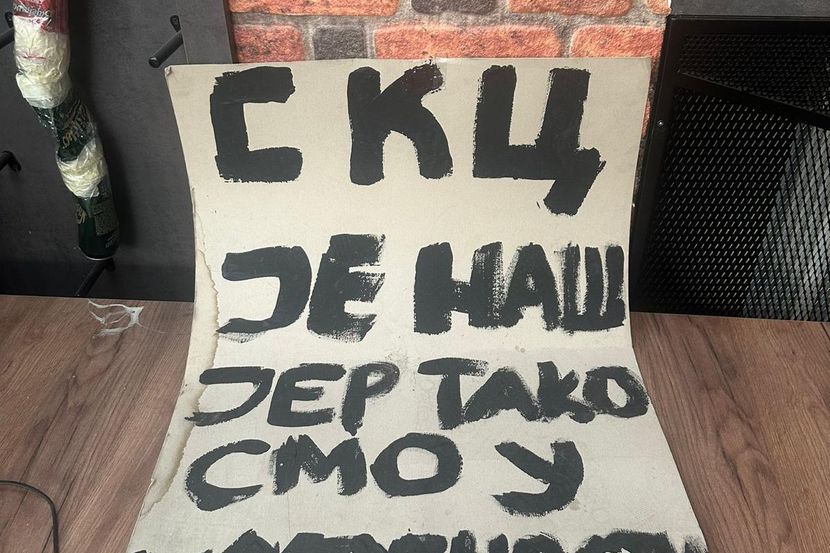 СКЦ
ЈЕ НАШ
ЈЕР ТАКО
СМО У